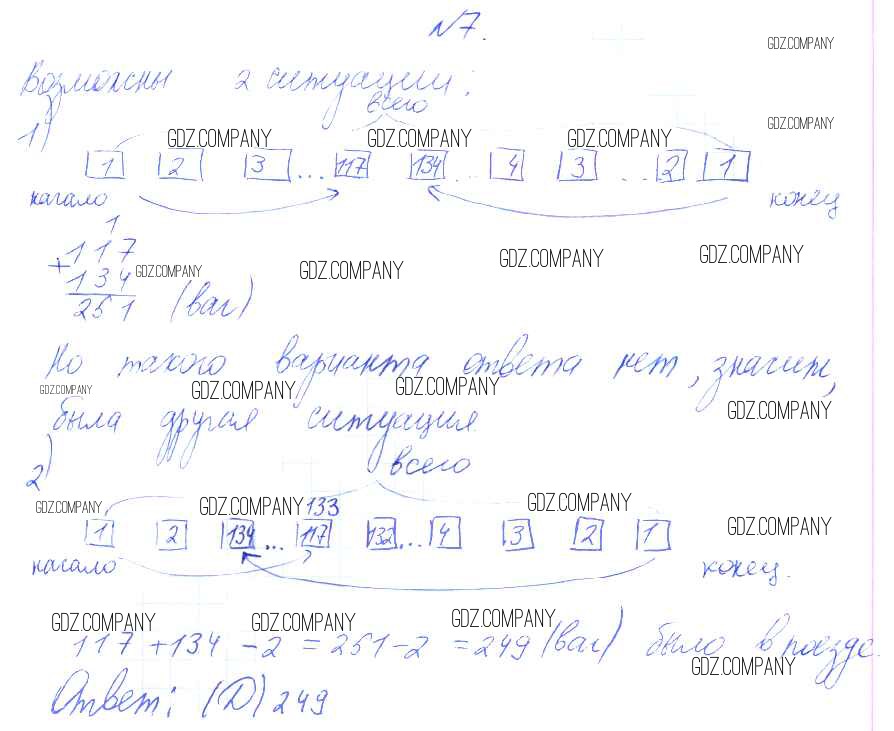 N7.
GDZ.COMPANY
Возможны 2 ситуации:
всего
GDZ.COMPANY
1) GDZ.COMPANY GDZ.COMPANY GDZ.COMPANY
1 2 3 ... 117 134 ... 4 3 ... 2 1
начало конец
1
+117
134 GDZ.COMPANY GDZ.COMPANY GDZ.COMPANY GDZ.COMPANY
251 (ваг)
Но такого варианта ответа нет, значит,
GDZ.COMPANY GDZ.COMPANY GDZ.COMPANY GDZ.COMPANY
была другая ситуация
2) всего
GDZ.COMPANY GDZ.COMPANY 133 GDZ.COMPANY
1 2 134 ... 117 132 ... 4 3 2 1 GDZ.COMPANY
начало конец.
GDZ.COMPANY GDZ.COMPANY GDZ.COMPANY
117 + 134 - 2 = 251 - 2 = 249 (ваг) было в поезде.
GDZ.COMPANY
Ответ: (D) 249